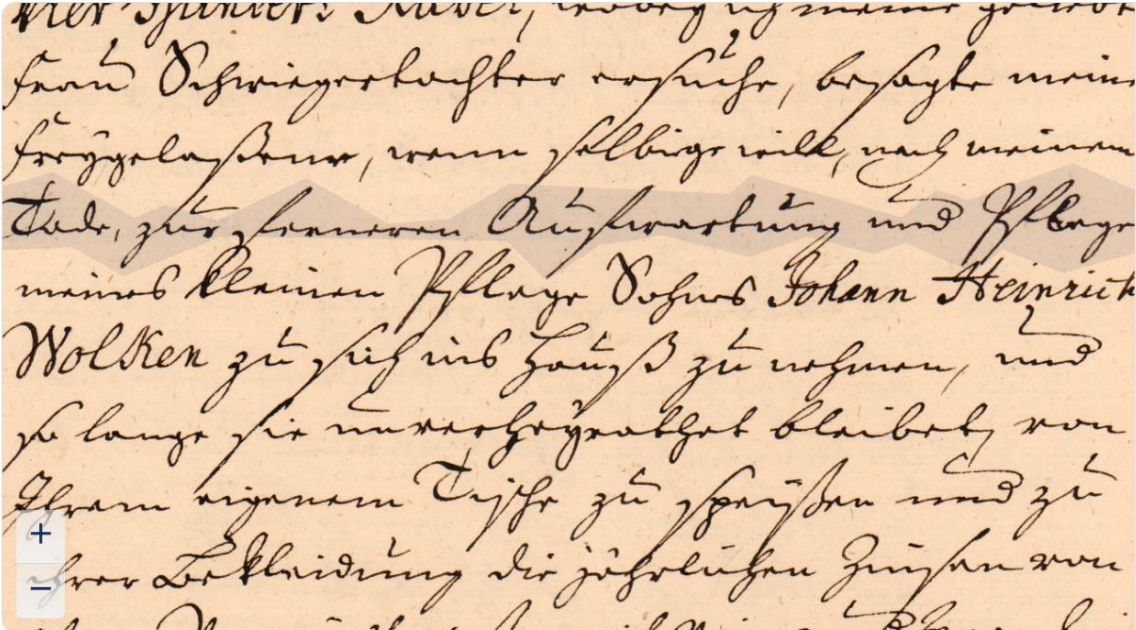 Vier Hundert Rubel, wobey ich meine geliebte
Frau Schwiegertochter ersuche, besagte meine
Freygelaßene, wenn selbige will, nach meinem
Tode, zur ferneren Aufwartung und Pflege
meines kleinen Pflege Sohnes Johann Heinrich
Wolken zu sich ins Hauß zu nehmen, und
so lange sie unverheyrathet bleibet, von
Ihrem eigenem Tische zu speißen und zu
ihrer Bekleidung die jährlichen Zinsen von